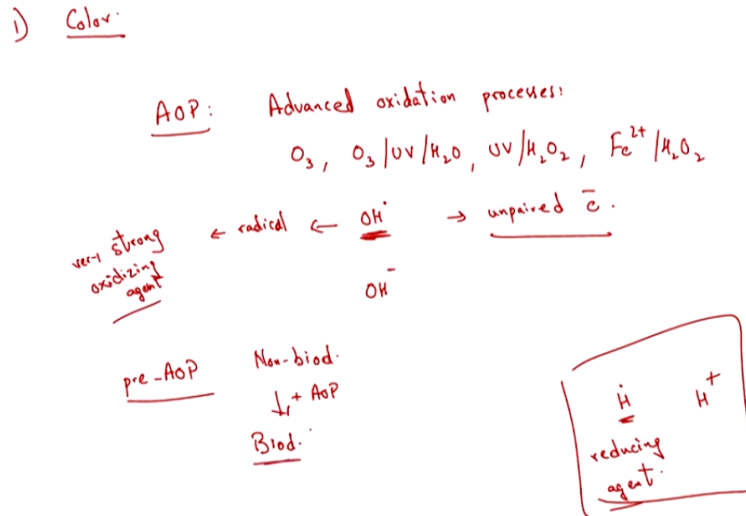 1) Color.
AOP: Advanced oxidation processes:
O₃, O₃/UV/H₂O, UV/H₂O₂, Fe²⁺/H₂O₂
very strong oxidizing agent ← radical ← OH˙ → unpaired e̅.
OH⁻
pre-AOP Non-biod.
↓ + AOP
Biod.
Ḣ H⁺
reducing
agent.